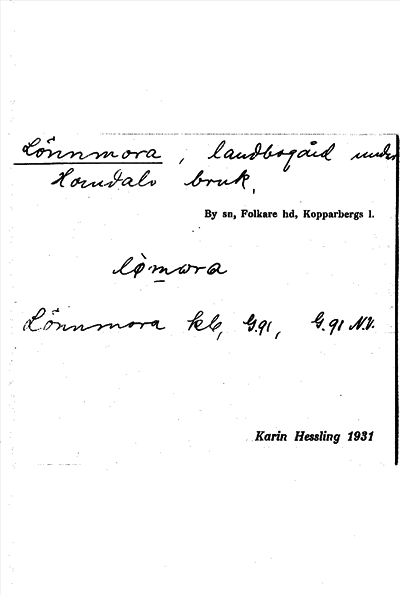 Lönnmora, landbogård under
Horndals bruk.
By sn, Folkare hd, Kopparbergs l.
lømora
Lönnmora kb, G.91, G.91 N.V.
Karin Hessling 1931